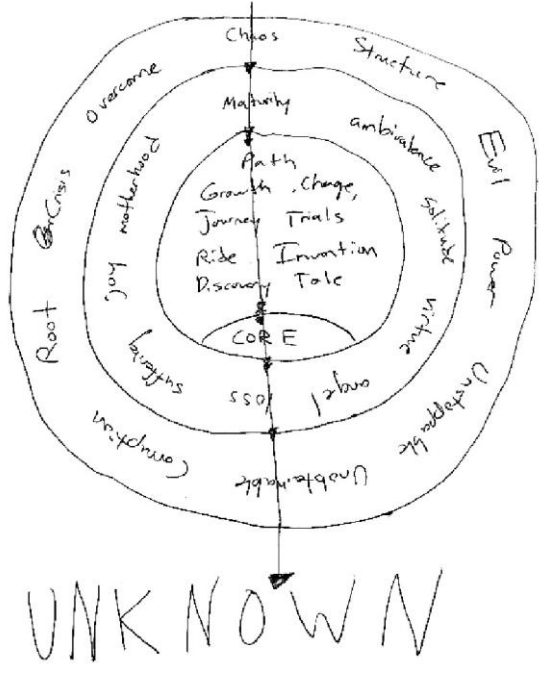 Chaos
Structure
Evil
Power
Unstoppable
Unobtainable
Corruption
Root
Crisis
Overcome
Maturity
ambivalence
Solitude
virtue
angel
loss
suffering
Joy
motherhood
Path
Growth, Change,
Journey Trials
Ride Invention
Discovery Tale
CORE
UNKNOWN